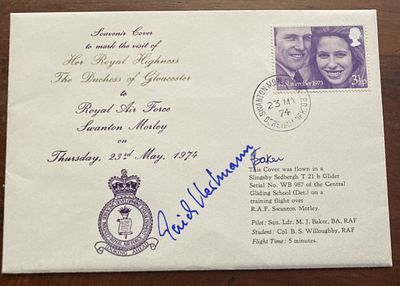 Souvenir Cover
to mark the visit of
Her Royal Highness
The Duchess of Gloucester
to
Royal Air Force
Swanton Morley
on
Thursday, 23rd May, 1974
14 November 1973
3½p
SWANTON MORLEY
23 MY
74
DEREHAM NFK
Baker
This Cover was flown in a
Slingsby Sedbergh T 21 b Glider
Serial No. WB 987 of the Central
Gliding School (Det.) on a
training flight over
R.A.F. Swanton Morley.
Pilot: Sqn. Ldr. M. J. Baker, BA, RAF
Student: Cpl. B. S. Willoughby, RAF
Flight Time: 5 minutes.